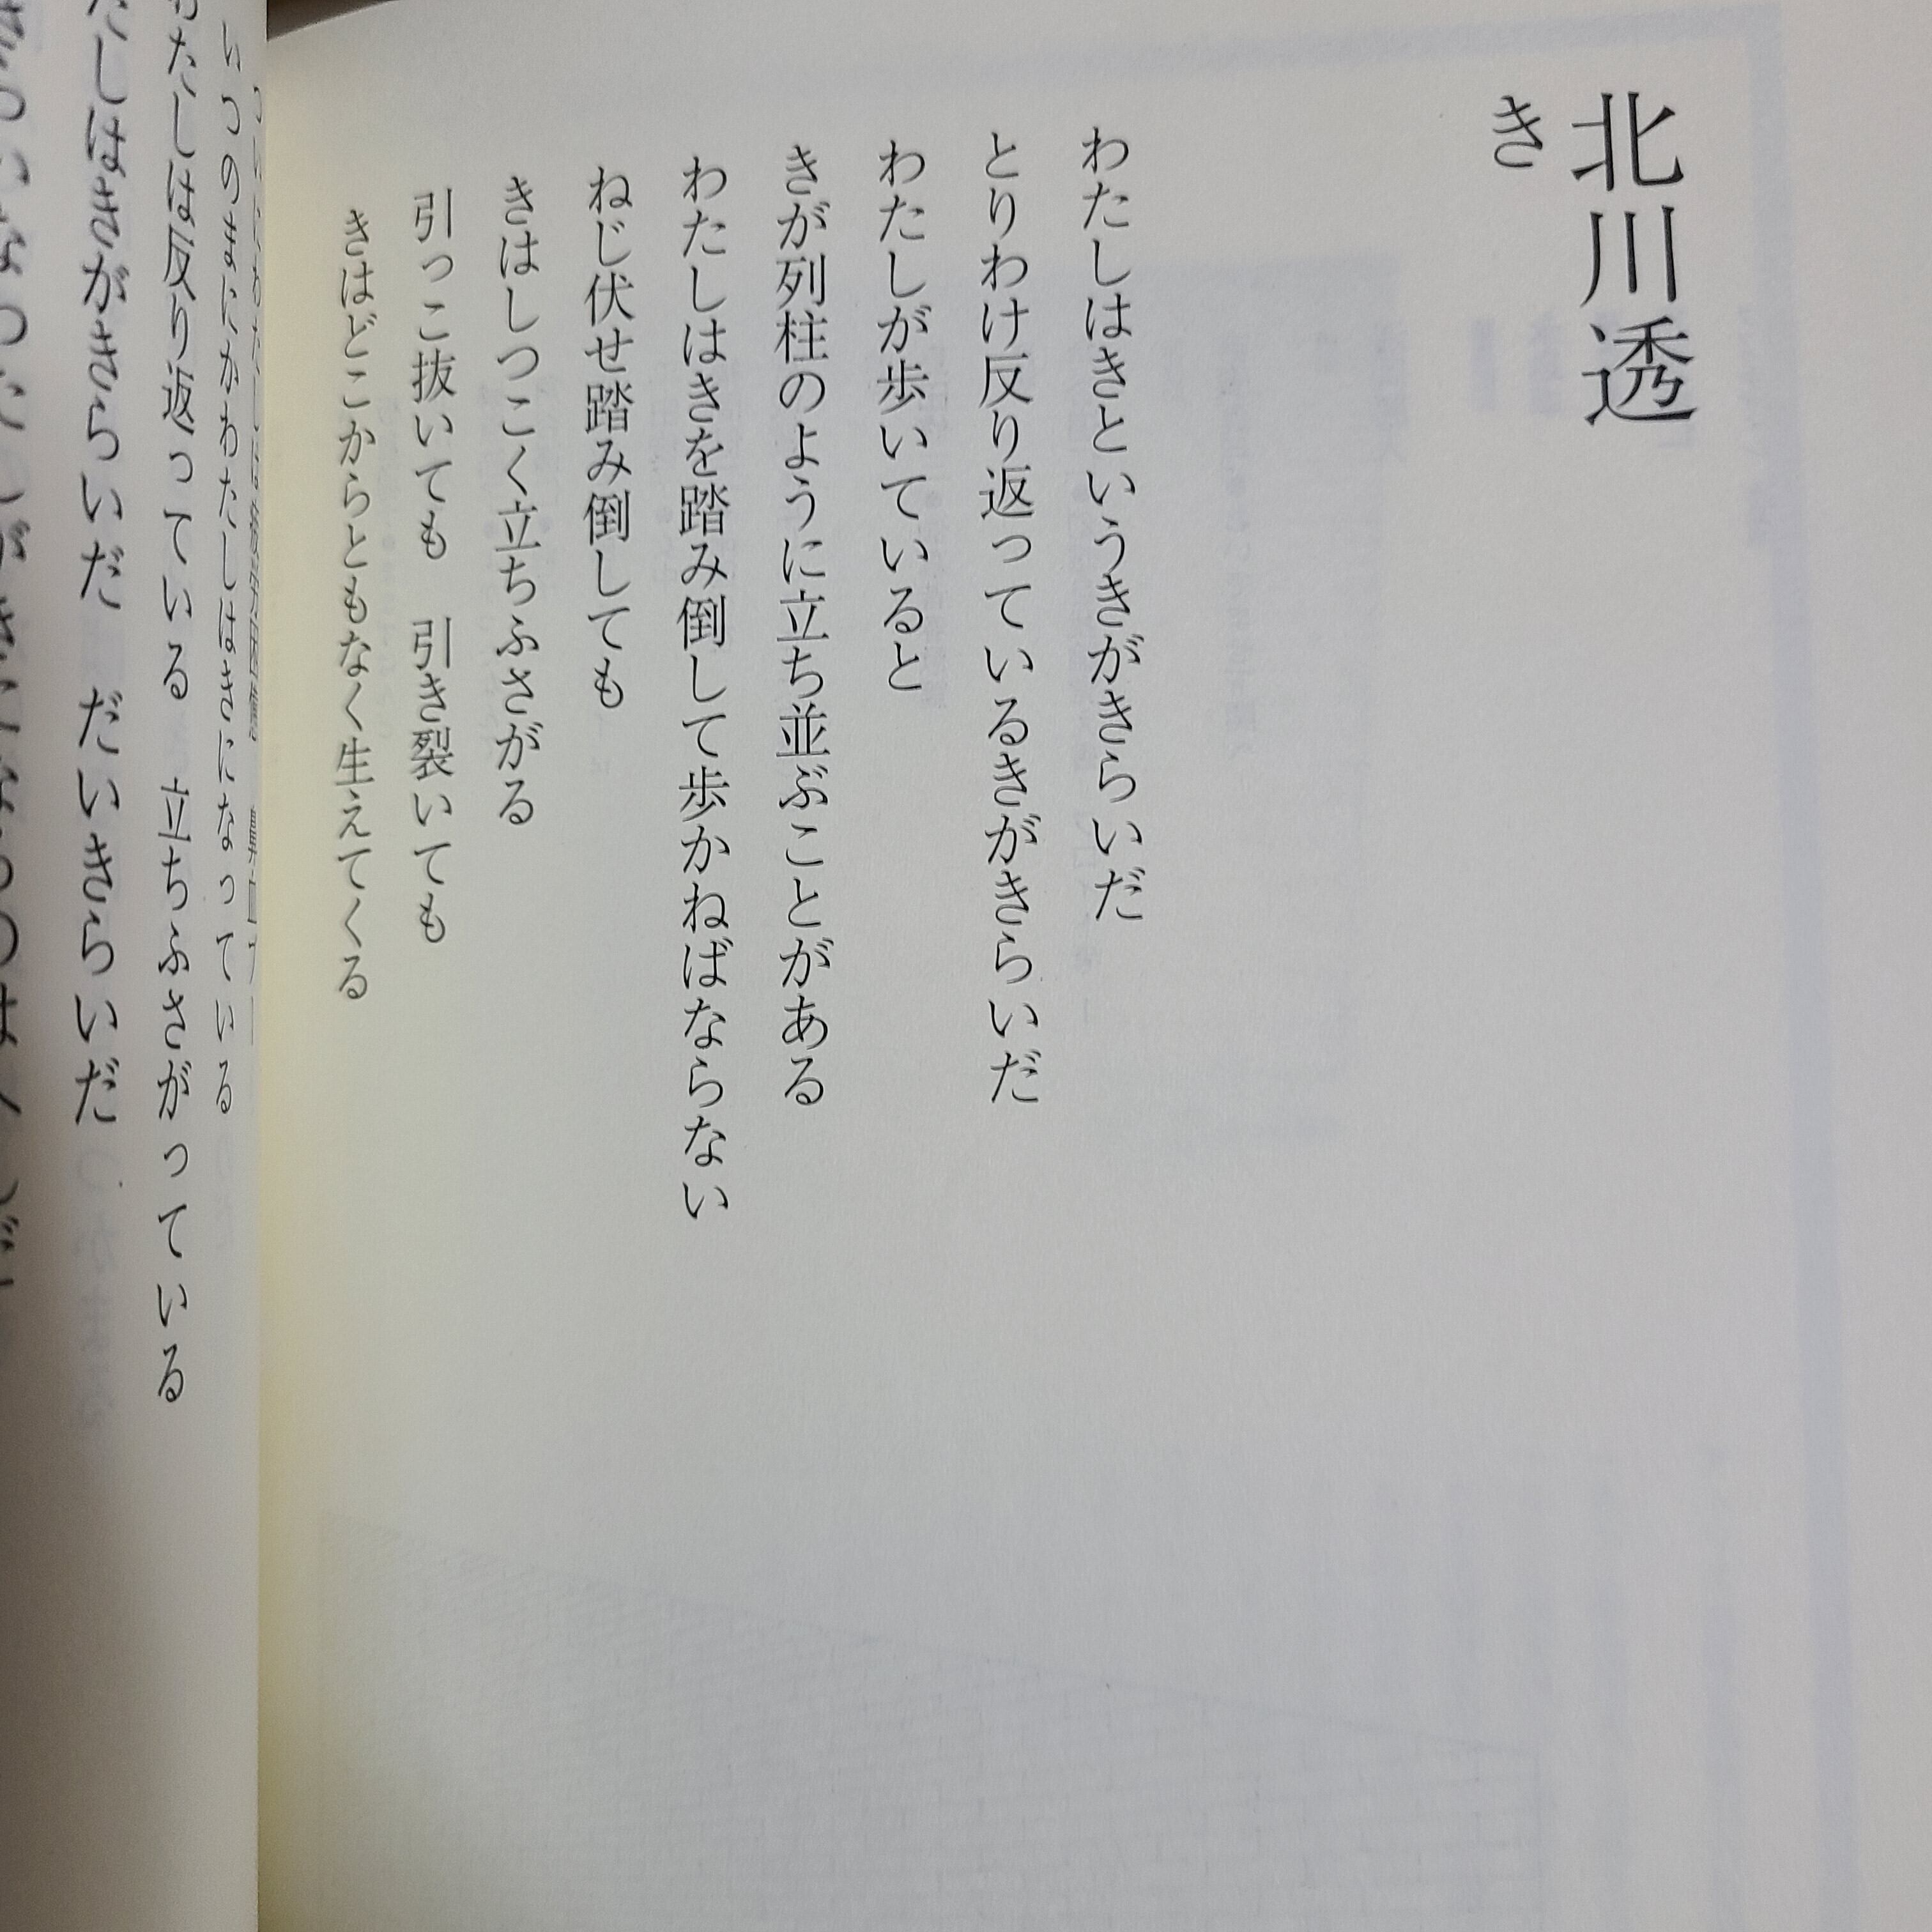 北川透
き
わたしはきというきがきらいだ
とりわけ反り返っているきがきらいだ
わたしが歩いていると
きが列柱のように立ち並ぶことがある
わたしはきを踏み倒して歩かねばならない
ねじ伏せ踏み倒しても
きはしつこく立ちふさがる
引っこ抜いても　引き裂いても
きはどこからともなく生えてくる
いつのまにかわたしはきになっている
わたしは反り返っている　立ちふさがっている
たしはきがきらいだ　だいきらいだ